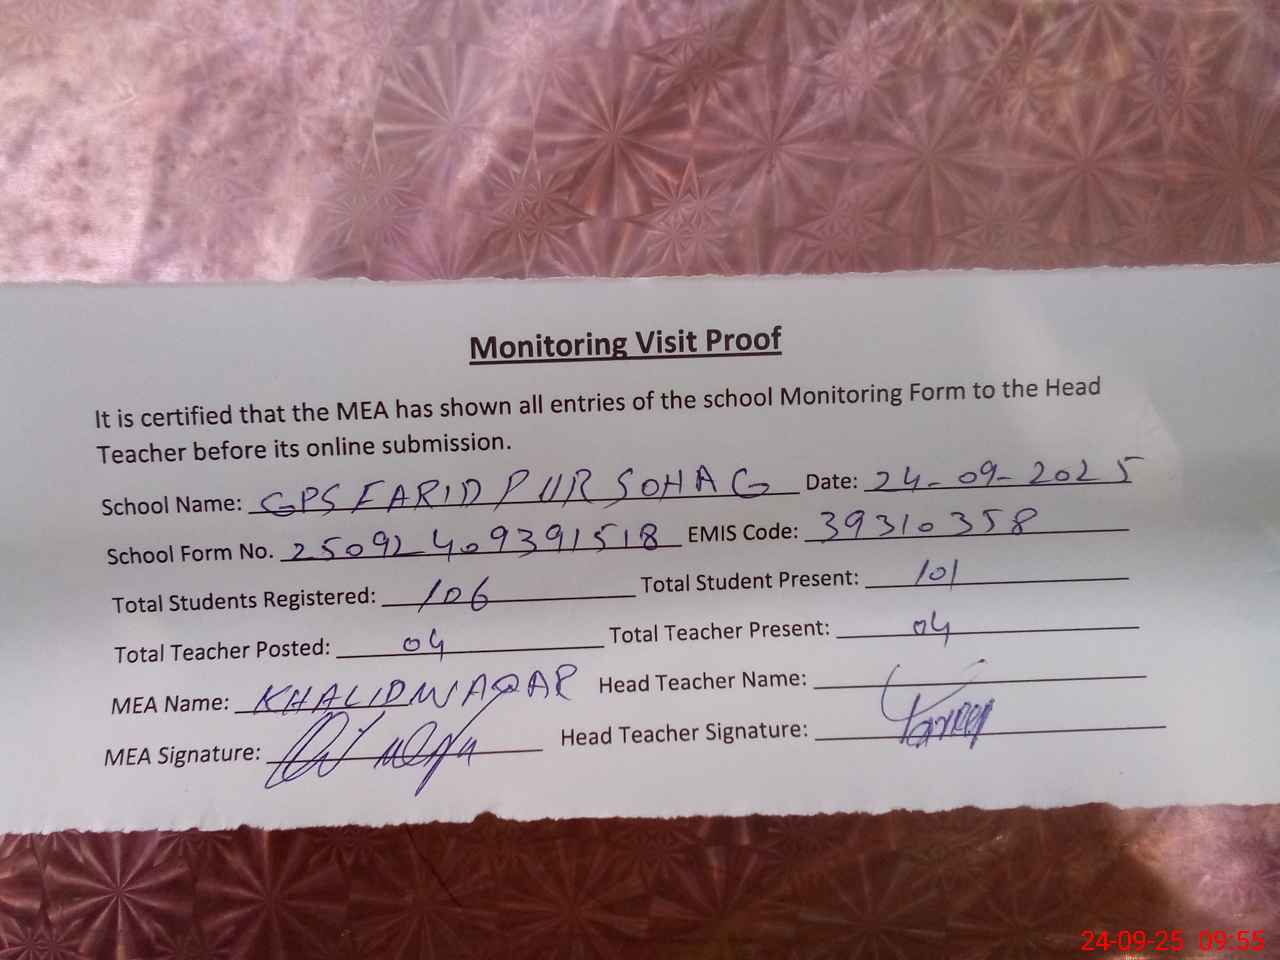 Monitoring Visit Proof
It is certified that the MEA has shown all entries of the school Monitoring Form to the Head
Teacher before its online submission.
School Name: GPS FARID PUR SOHAG Date: 24-09-2025
School Form No. 25092409391518 EMIS Code: 39310358
Total Students Registered: 106 Total Student Present: 101
Total Teacher Posted: 04 Total Teacher Present: 04
MEA Name: KHALID WAQAR Head Teacher Name:
MEA Signature: Head Teacher Signature:
24-09-25 09:55